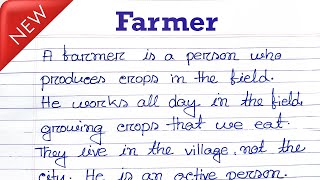 NEW
Farmer
A farmer is a person who
produces crops in the field.
He works all day in the field
growing crops that we eat.
They live in the village, not the
city. He is an active person.